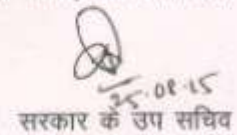 25.08.15
सरकार के उप सचिव